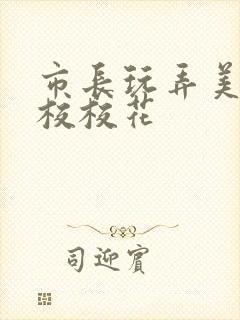 市长玩弄美
校校花
司迎宾